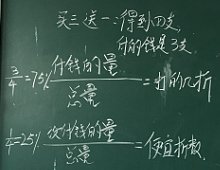 买三送一：得到四支
付的钱是3支
3/4=75% 付钱的量/总量=出的几折
1/4=25% 没付钱的量/总量=便宜折数